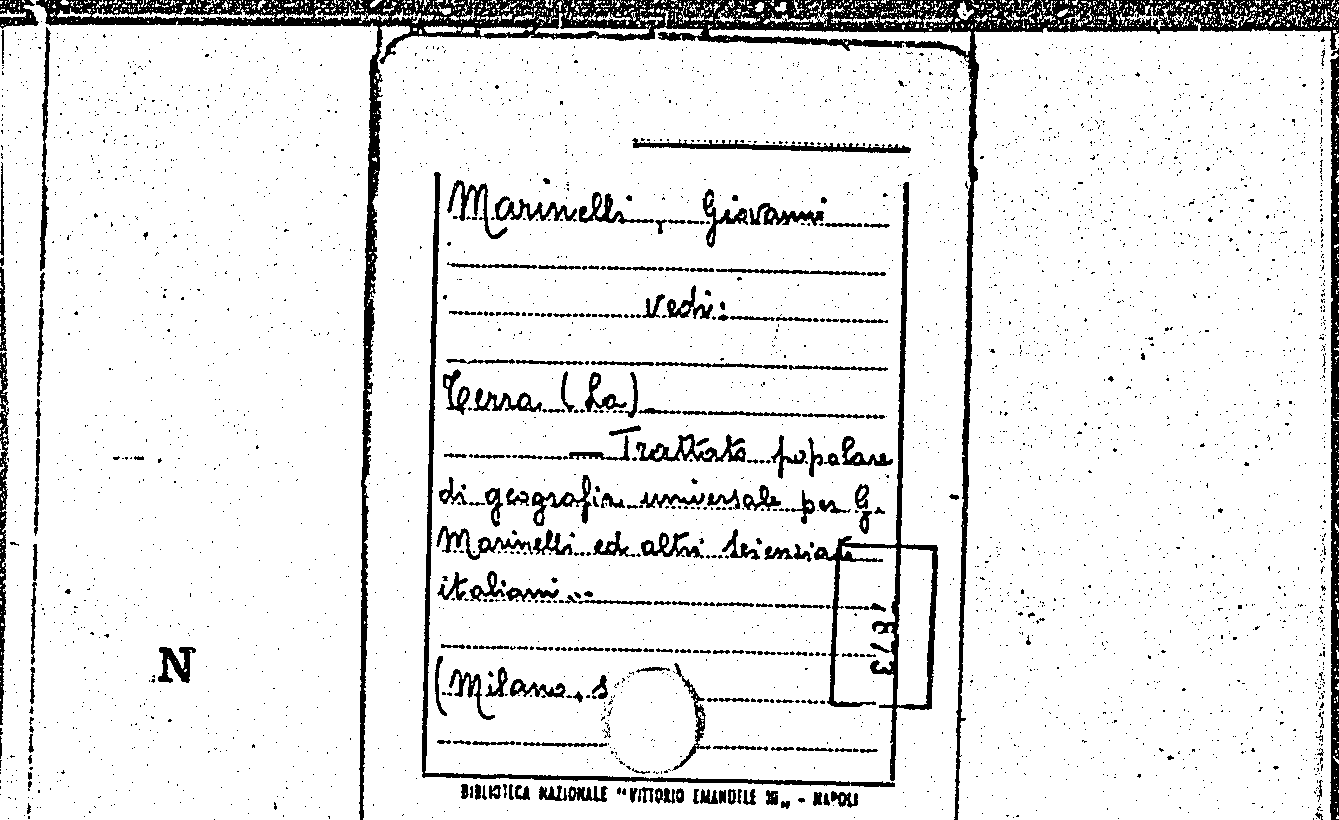 Marinelli, Giovanni
vedi:
Terra (La)
— Trattato popolare
di geografia universale per G.
Marinelli ed altri scienziati
italiani...
(Milano, s
N
BIBLIOTECA NAZIONALE "VITTORIO EMANUELE III" - NAPOLI